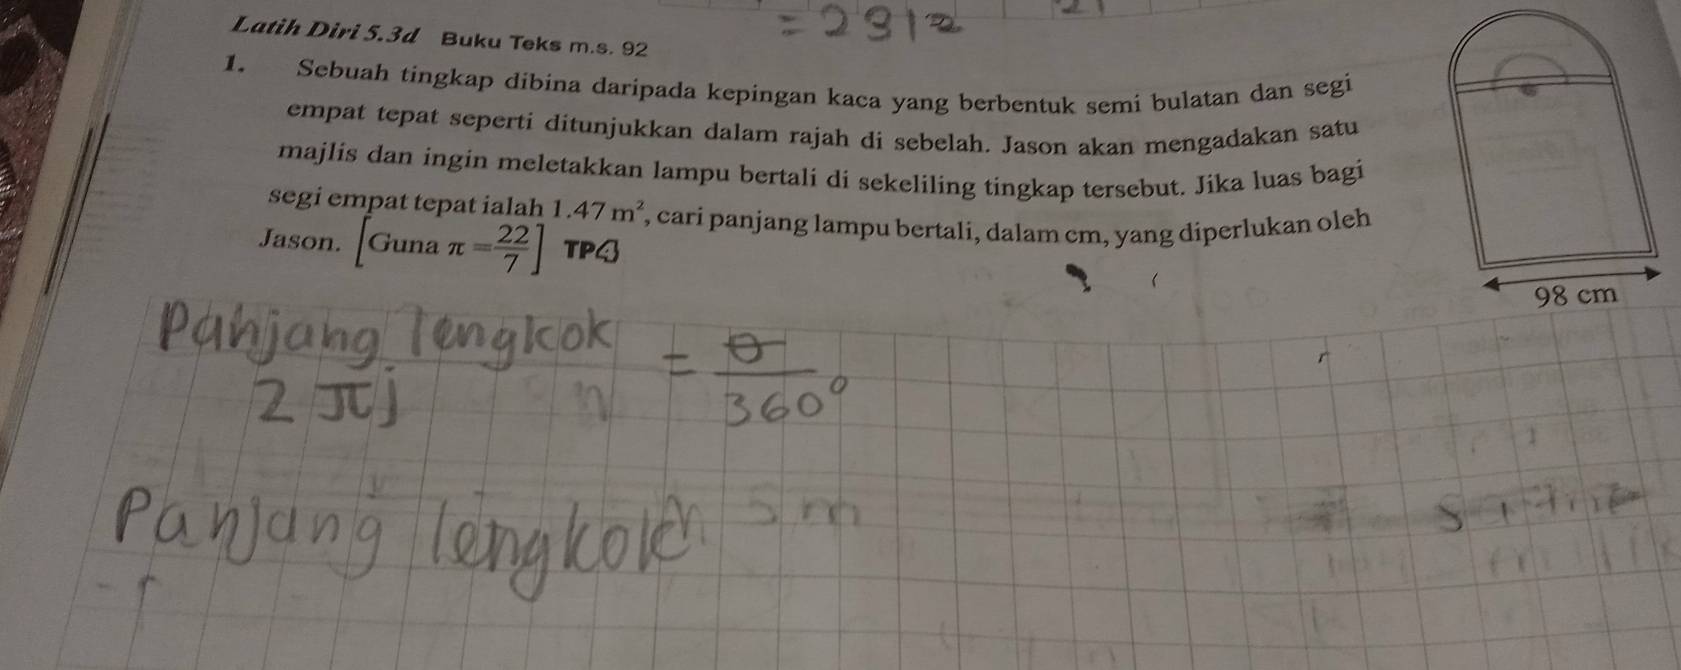 = 2312
Latih Diri 5.3d Buku Teks m.s. 92
1. Sebuah tingkap dibina daripada kepingan kaca yang berbentuk semi bulatan dan segi
empat tepat seperti ditunjukkan dalam rajah di sebelah. Jason akan mengadakan satu
majlis dan ingin meletakkan lampu bertali di sekeliling tingkap tersebut. Jika luas bagi
segi empat tepat ialah 1.47 m², cari panjang lampu bertali, dalam cm, yang diperlukan oleh
Jason. [Guna π = 22/7] TP
98 cm
Panjang lengkok / 2πj = θ / 360°
Panjang lengkok